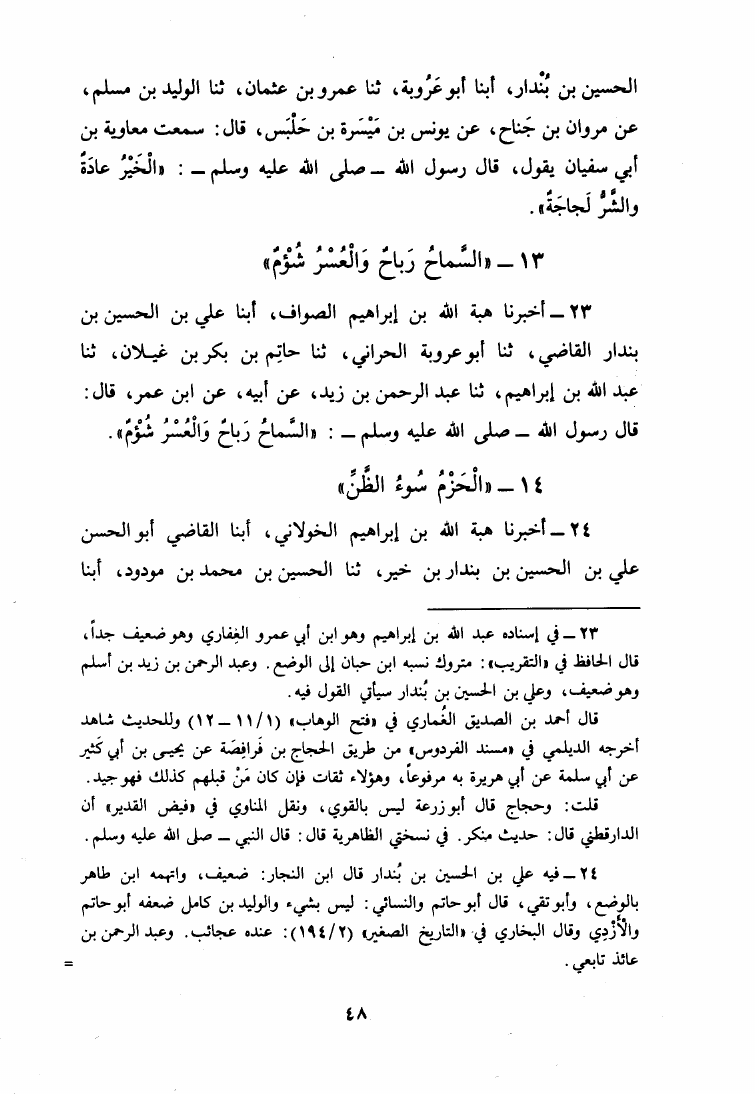 الحسين بن بُنْدار، أبنا أبو عَرُوبة، ثنا عمرو بن عثمان، ثنا الوليد بن مسلم،
عن مروان بن جَناح، عن يونس بن مَيْسَرة بن حَلْبَس، قال: سمعت معاوية بن
أبي سفيان يقول، قال رسول الله ــ صلى الله عليه وسلم ــ : «الْخَيْرُ عادَةٌ
والشَّرُّ لَجاجَةٌ».
١٣ ــ «السَّماحُ رَباحٌ وَالْعُسْرُ شُؤْمٌ»
٢٣ ــ أخبرنا هبة الله بن إبراهيم الصواف، أبنا علي بن الحسين بن
بندار القاضي، ثنا أبو عروبة الحراني، ثنا حاتِم بن بكر بن غيـلان، ثنا
عبد الله بن إبراهيم، ثنا عبد الرحمن بن زيد، عن أبيه، عن ابن عمر، قال:
قال رسول الله ــ صلى الله عليه وسلم ــ : «السَّماحُ رَباحٌ وَالْعُسْرُ شُؤْمٌ».
١٤ ــ «الْحَزْمُ سُوءُ الظَّنِّ»
٢٤ ــ أخبرنا هبة الله بن إبراهيم الخولاني، أبنا القاضي أبو الحسن
علي بن الحسين بن بندار بن خير، ثنا الحسين بن محمد بن مودود، أبنا
٢٣ ــ في إسناده عبد الله بن إبراهيم وهو ابن أبي عمرو الغِفاري وهو ضعيف جداً،
قال الحافظ في «التقريب»: متروك نسبه ابن حبان إلى الوضع. وعبد الرحمن بن زيد بن أسلم
وهو ضعيف، وعلي بن الحسين بن بُندار سيأتي القول فيه.
قال أحمد بن الصديق الغُماري في «فتح الوهاب» (١١/١ ــ ١٢) وللحديث شاهد
أخرجه الديلمي في «مسند الفردوس» من طريق الحجاج بن فَرافِصَة عن يحيى بن أبي كَثير
عن أبي سلمة عن أبي هريرة به مرفوعاً، وهؤلاء ثقات فإن كان مَنْ قبلهم كذلك فهو جيد.
قلت: وحجاج قال أبو زرعة ليس بالقوي، ونقل المناوي في «فيض القدير» أن
الدارقطني قال: حديث منكر. في نسختي الظاهرية قال: قال النبي ــ صلى الله عليه وسلم.
٢٤ ــ فيه علي بن الحسين بن بُندار قال ابن النجار: ضعيف، واتهمه ابن طاهر
بالوضع، وأبو تقي، قال أبو حاتم والنسائي: ليس بشيء والوليد بن كامل ضعفه أبو حاتم
والأَزْدِي وقال البخاري في «التاريخ الصغير» (١٩٤/٢): عنده عجائب. وعبد الرحمن بن
عائذ تابعي. =
٤٨